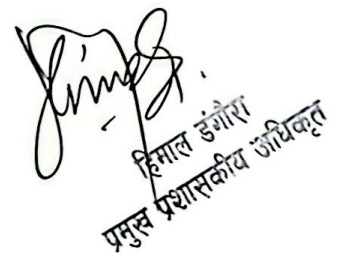 हिमाल डंगौरा
प्रमुख प्रशासकीय अधिकृत